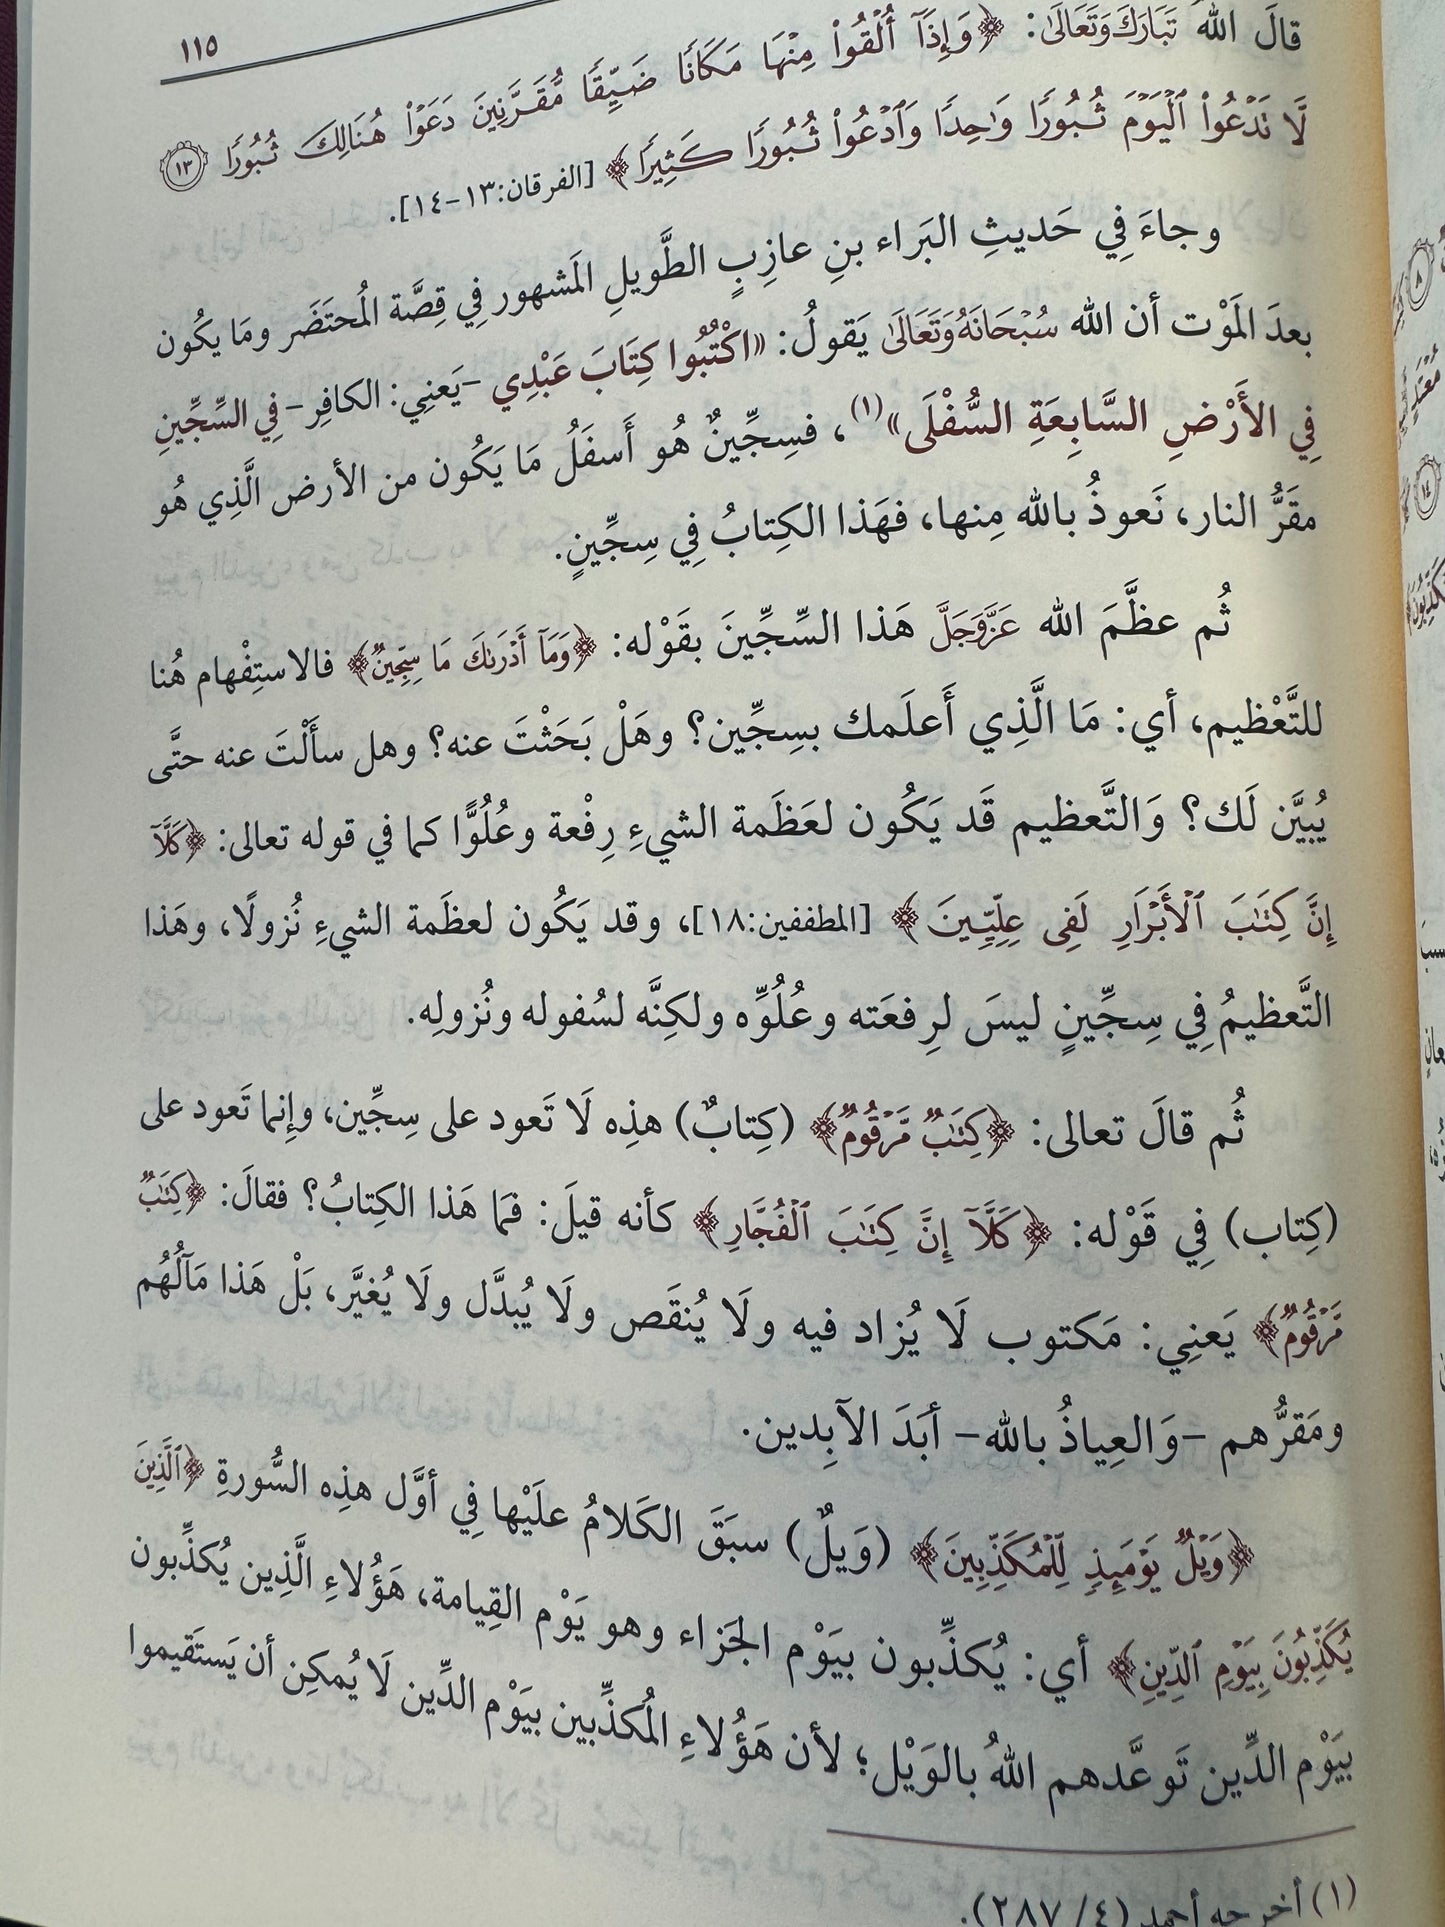 ١١٥
قالَ اللهُ تَبَارَكَ وَتَعَالَىٰ: ﴿وَإِذَآ أُلۡقُواْ مِنۡهَا مَكَانٗا ضَيِّقٗا مُّقَرَّنِينَ دَعَوۡاْ هُنَالِكَ ثُبُورٗا ١٣
لَّا تَدۡعُواْ ٱلۡيَوۡمَ ثُبُورٗا وَٰحِدٗا وَٱدۡعُواْ ثُبُورٗا كَثِيرٗا﴾ [الفرقان:١٣-١٤].
وجاءَ فِي حَديثِ البَراء بنِ عازِبٍ الطَّويلِ المَشهور فِي قِصَّة المُحتَضَر ومَا يكُون
بعدَ المَوْت أن الله سُبْحَانَهُ وَتَعَالَىٰ يَقولُ: «اكْتُبُوا كِتَابَ عَبْدِي -يَعنِي: الكافِر- فِي السِّجِّينِ
فِي الأَرْضِ السَّابِعَةِ السُّفْلَى»(١)، فسِجِّينٌ هُو أَسفَلُ مَا يَكُون من الأرض الَّذِي هُو
مقَرُّ النار، نَعوذُ بالله مِنها، فهَذا الكِتابُ فِي سِجِّينٍ.
ثُم عظَّمَ الله عَزَّوَجَلَّ هَذا السِّجِّينَ بقَوْله: ﴿وَمَآ أَدۡرَىٰكَ مَا سِجِّينٞ﴾ فالاستِفْهام هُنا
للتَّعْظيم، أي: مَا الَّذِي أَعلَمك بسِجِّين؟ وهَلْ بَحَثْتَ عنه؟ وهل سأَلْتَ عنه حتَّى
يُبيَّن لَك؟ وَالتَّعظيم قَد يَكُون لعَظَمة الشيءِ رِفْعة وعُلُوًّا كما في قوله تعالى: ﴿كَلَّآ
إِنَّ كِتَٰبَ ٱلۡأَبۡرَارِ لَفِي عِلِّيِّينَ﴾ [المطففين:١٨]، وقد يَكُون لعظَمة الشيءِ نُزولًا، وهَذا
التَّعظيمُ فِي سِجِّينٍ ليسَ لرِفعَته وعُلُوِّه ولكِنَّه لسُفوله ونُزولِه.
ثُم قالَ تعالى: ﴿كِتَٰبٞ مَّرۡقُومٞ﴾ (كِتابٌ) هذِه لَا تَعود على سِجِّين، وإِنما تَعود على
(كِتاب) فِي قَوْله: ﴿كَلَّآ إِنَّ كِتَٰبَ ٱلۡفُجَّارِ﴾ كأنه قيلَ: فمَا هَذا الكِتابُ؟ فقالَ: ﴿كِتَٰبٞ
مَّرۡقُومٞ﴾ يَعنِي: مَكتوب لَا يُزاد فيه ولَا يُنقَص ولَا يُبدَّل ولَا يُغيَّر، بَلْ هَذا مَآلُهُم
ومَقرُّهم -وَالعِياذُ بالله- أبَدَ الآبِدين.
﴿وَيۡلٞ يَوۡمَئِذٖ لِّلۡمُكَذِّبِينَ﴾ (وَيلٌ) سبَقَ الكَلامُ علَيْها فِي أوَّل هذِه السُّورةِ ﴿ٱلَّذِينَ
يُكَذِّبُونَ بِيَوۡمِ ٱلدِّينِ﴾ أي: يُكذِّبون بيَوْم الجَزاء وهو يَوْم القِيامة، هَؤُلاءِ الَّذِين يُكذِّبون
بيَوْم الدِّين تَوعَّدهم اللهُ بالوَيْل؛ لأن هَؤُلاءِ المُكذِّبين بيَوْم الدِّين لَا يُمكِن أن يَستَقيموا
(١) أخرجه أحمد (٤/ ٢٨٧).